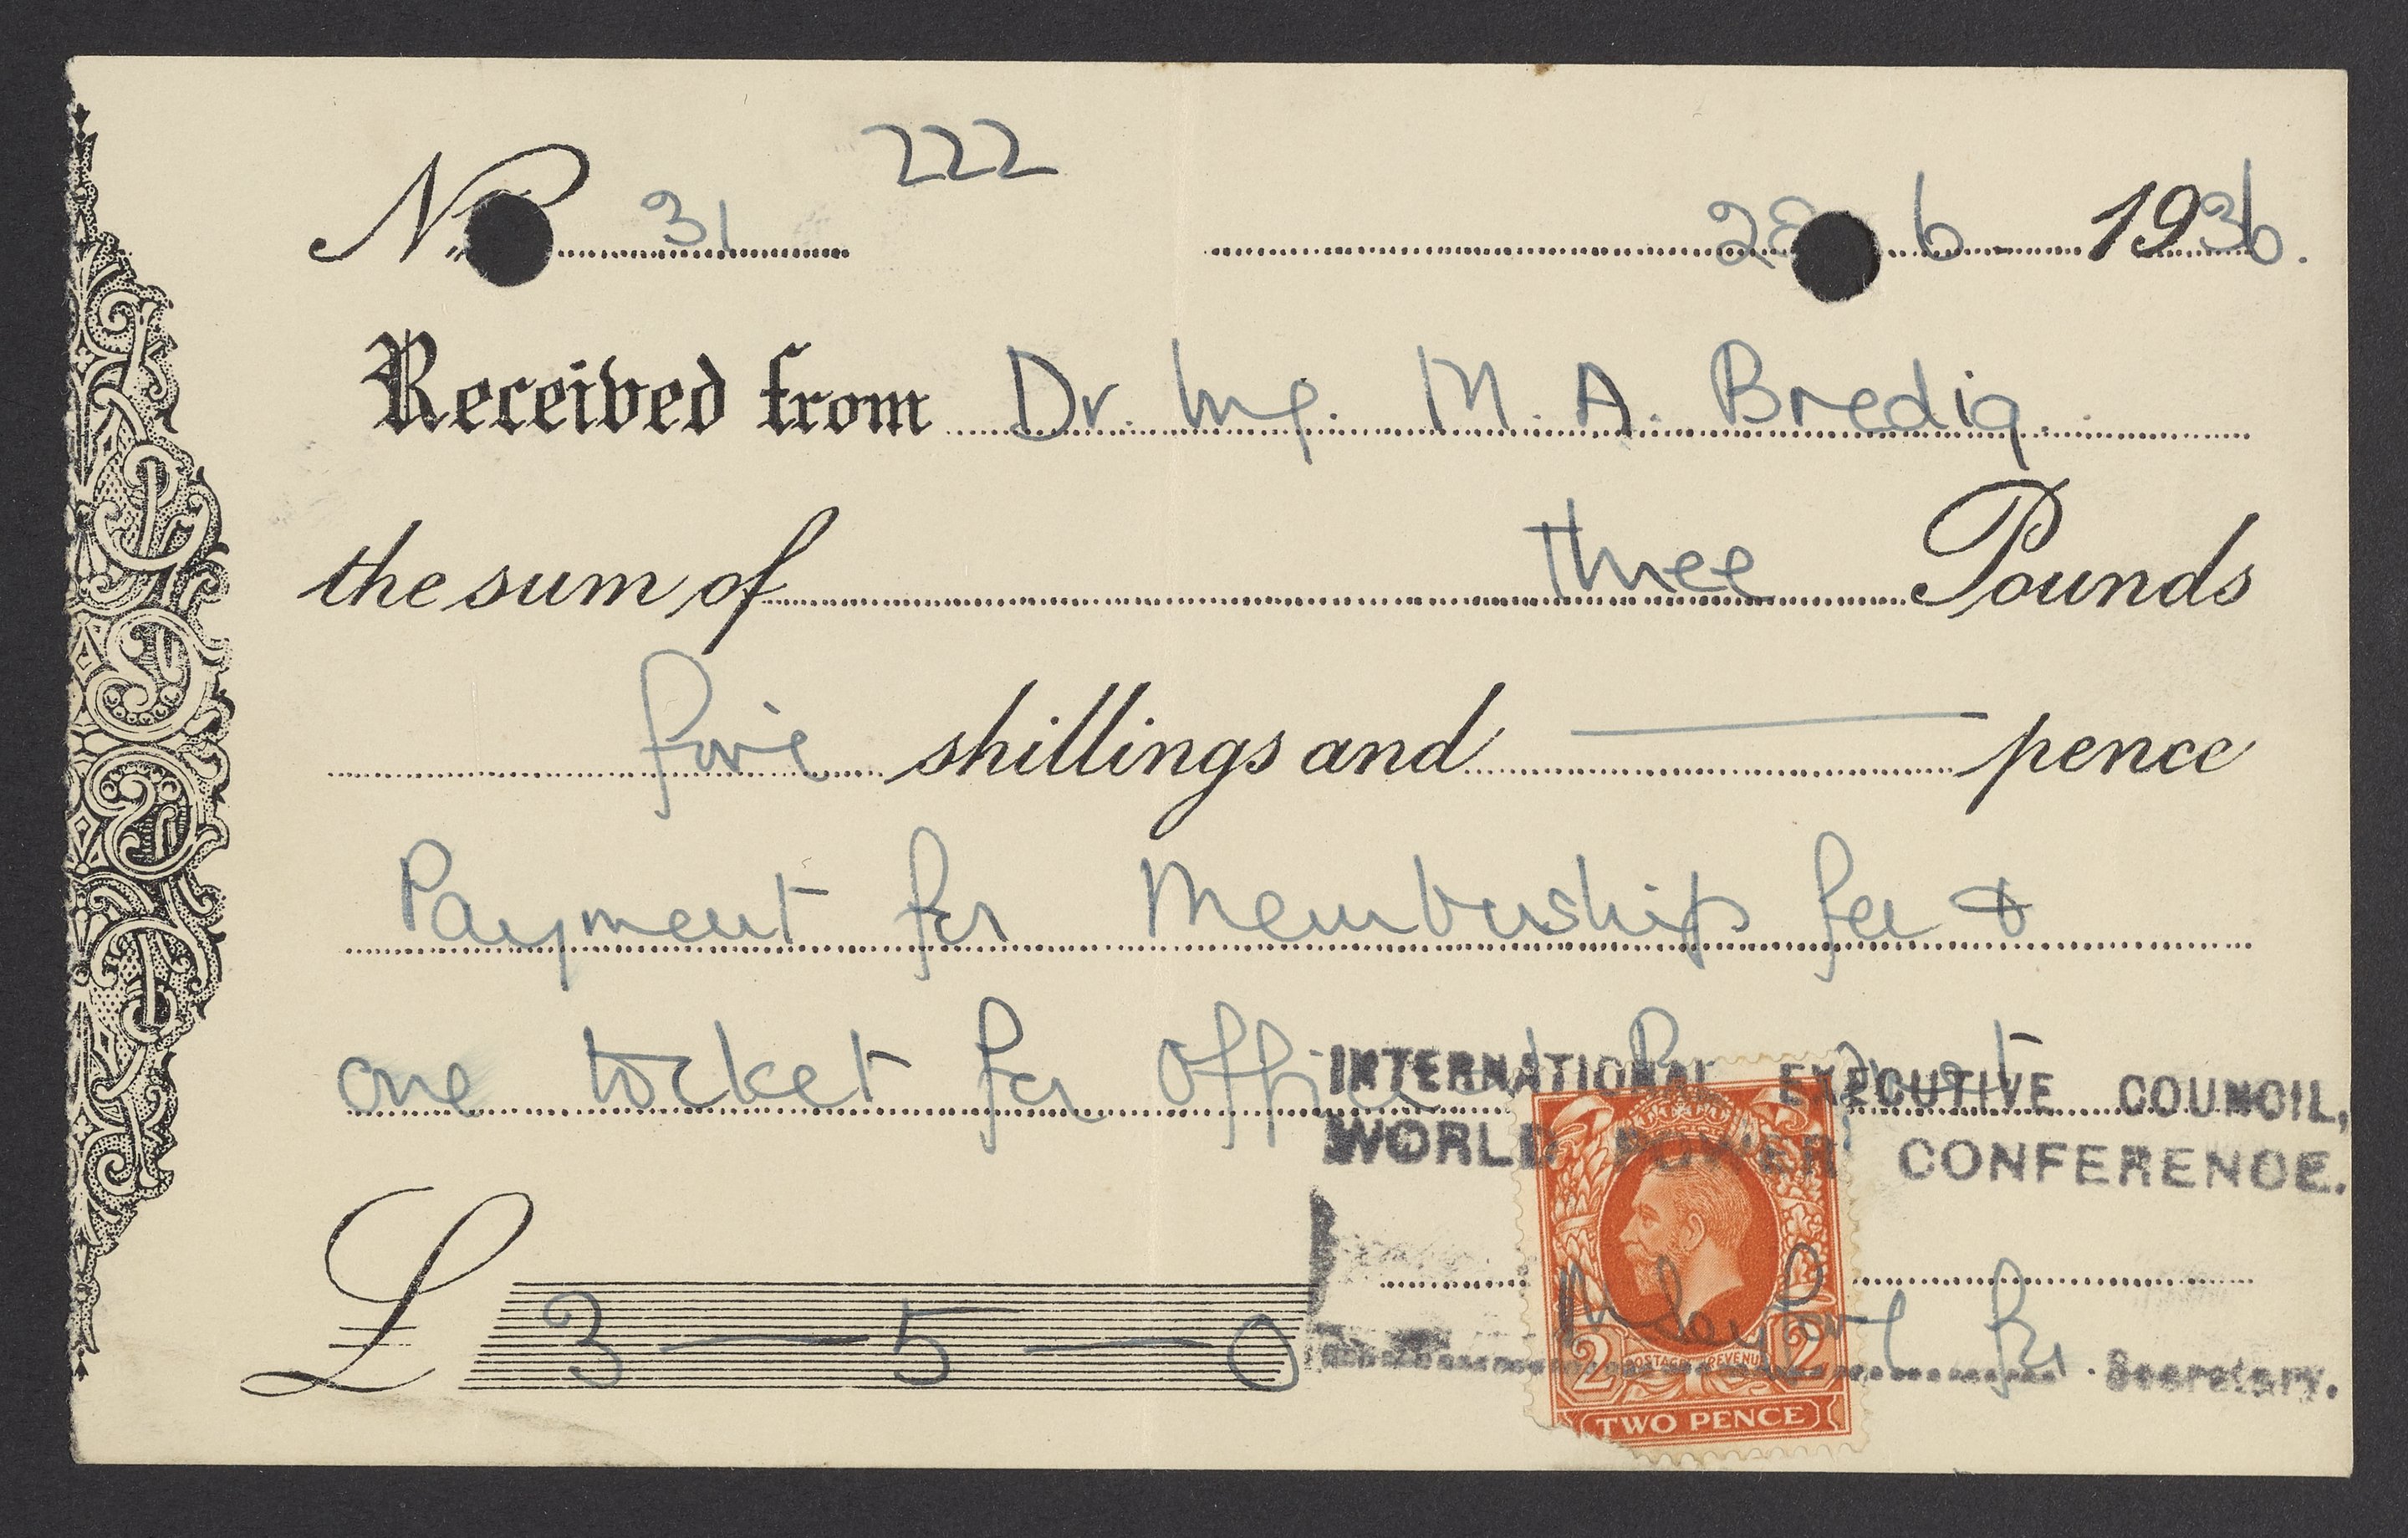 222
No 31 28 6 1936.
Received from Dr. Ing. M. A. Bredig.
the sum of three Pounds
five shillings and — pence
Payment for Membership fee &
one ticket for Official Banquet
INTERNATIONAL EXECUTIVE COUNCIL,
WORLD POWER CONFERENCE.
£ 3 — 5 — 0
for Secretary.
2 POSTAGE REVENUE 2
TWO PENCE